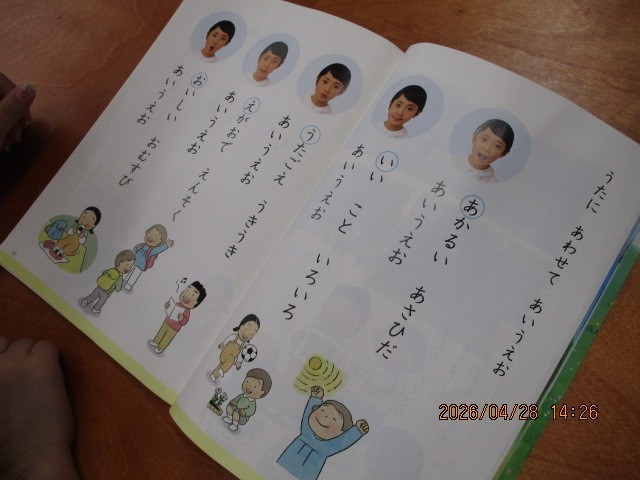 うたに あわせて あいうえお
あかるい
あいうえお あさひだ
いい こと
あいうえお いろいろ
うたごえ
あいうえお うきうき
えがおで
あいうえお えんそく
おいしい
あいうえお おむすび
2026/04/28 14:26